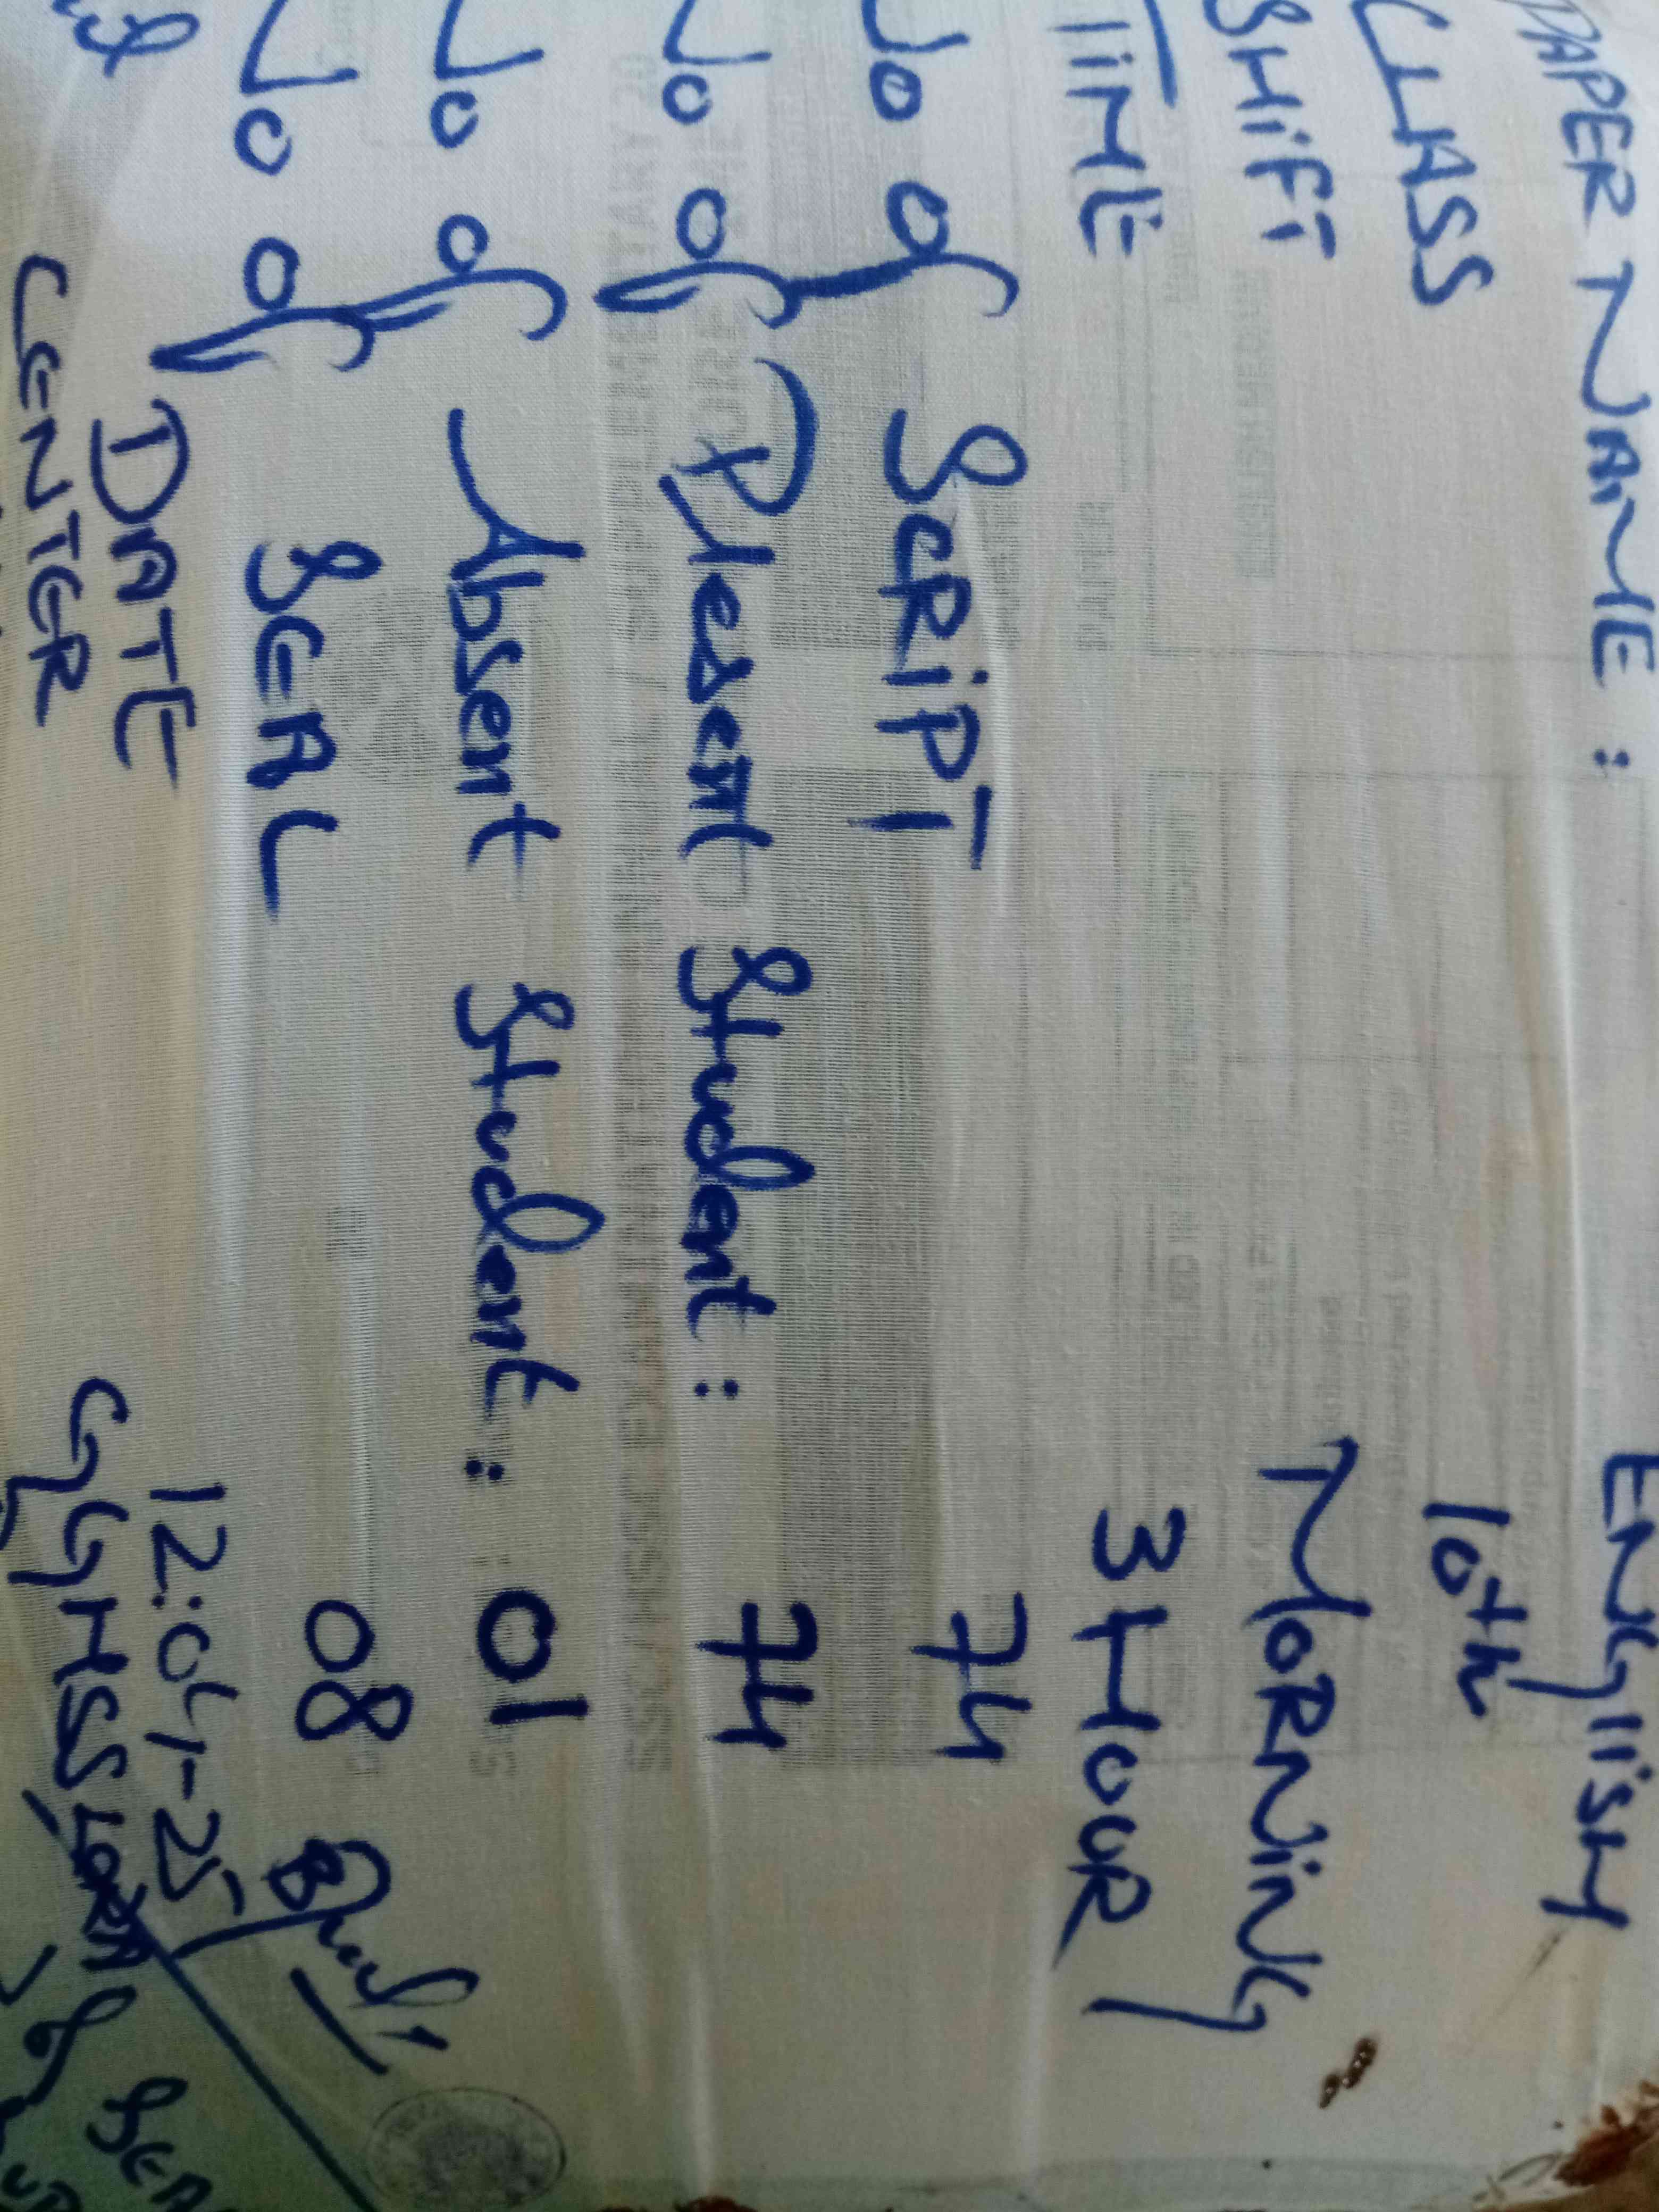 PAPER NAME : ENGLISH
CLASS 10th
SHIFT MORNING
TIME 3 HOUR
No of SCRIPT 74
No of Present Student : 74
No of Absent Student : 01
No of SEAL 08
DATE 12.04-25
CENTER GGHSS